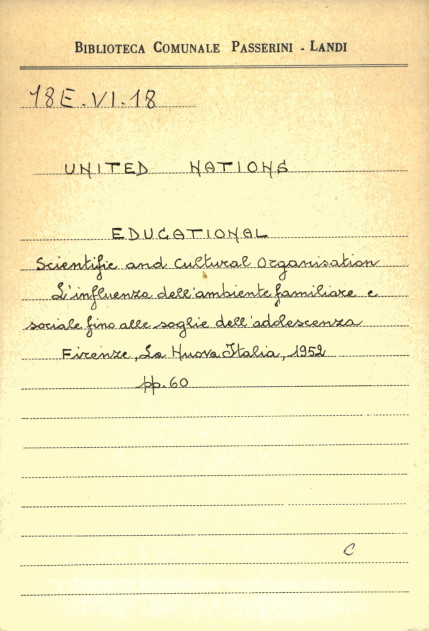 BIBLIOTECA COMUNALE PASSERINI - LANDI
18E.VI.18
UNITED NATIONS
EDUCATIONAL
Scientific and Cultural Organisation
L'influenza dell'ambiente familiare e
sociale fino alle soglie dell'adolescenza
Firenze, La Nuova Italia, 1952
pp. 60
C